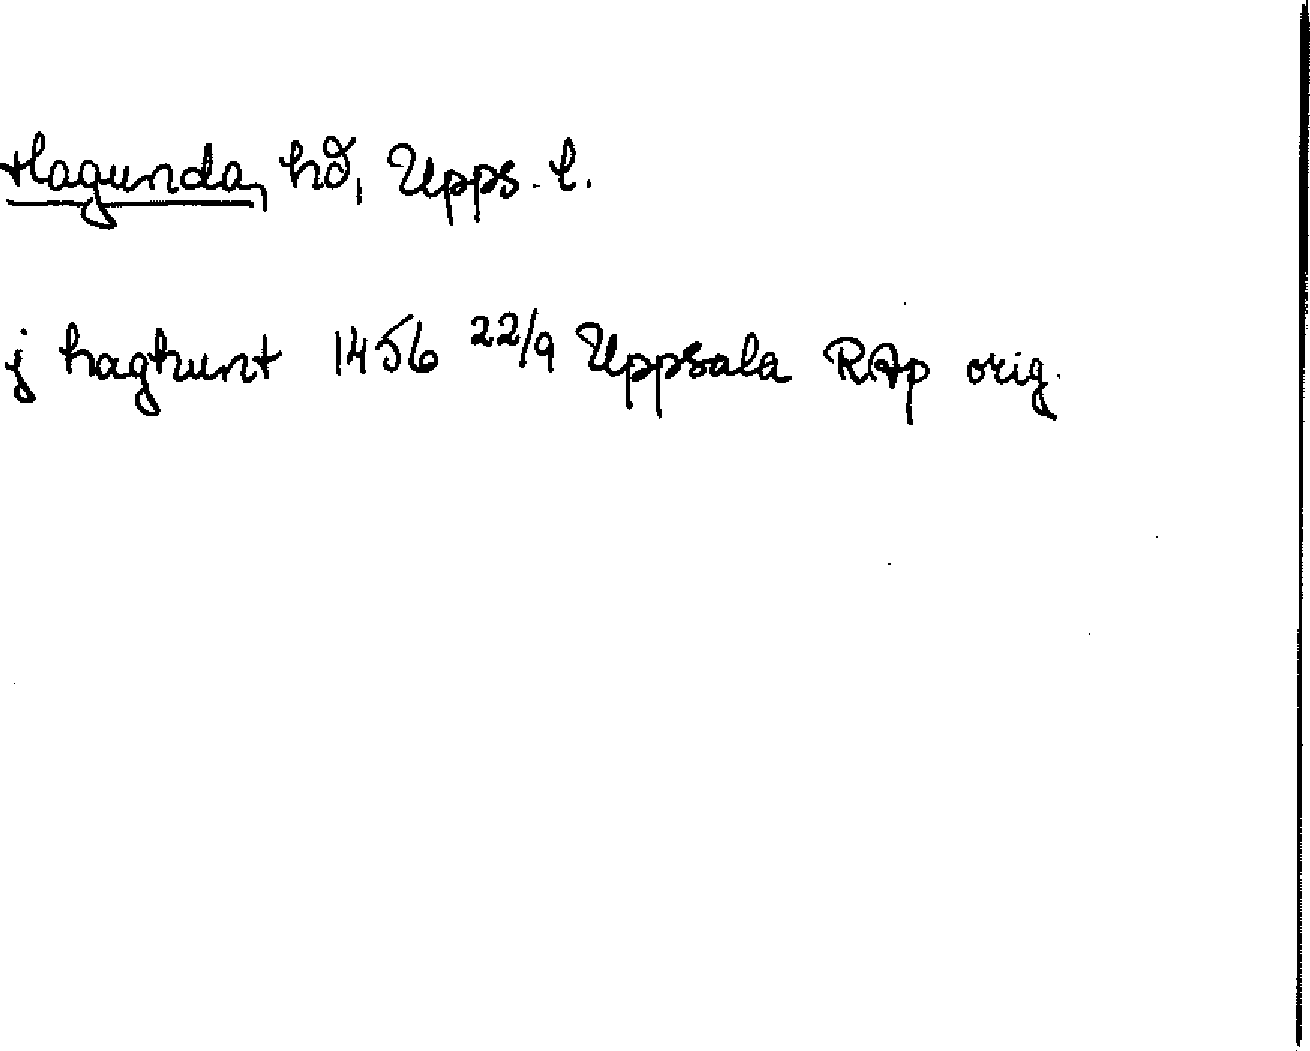 Hagunda, hd, Upps. l.
j haghunt 1456 22/9 Uppsala RAp orig.